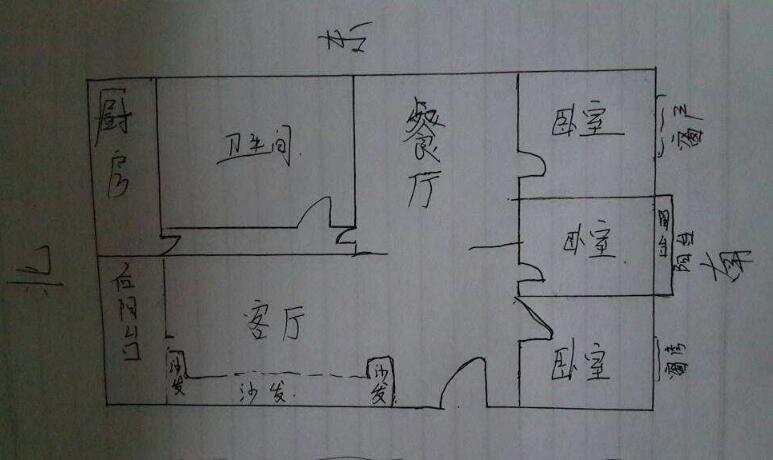 东
厨房
卫生间
餐厅
卧室
窗户
北
卧室
阳台
南
后阳台门
客厅
沙发
沙发
沙发
卧室
窗户